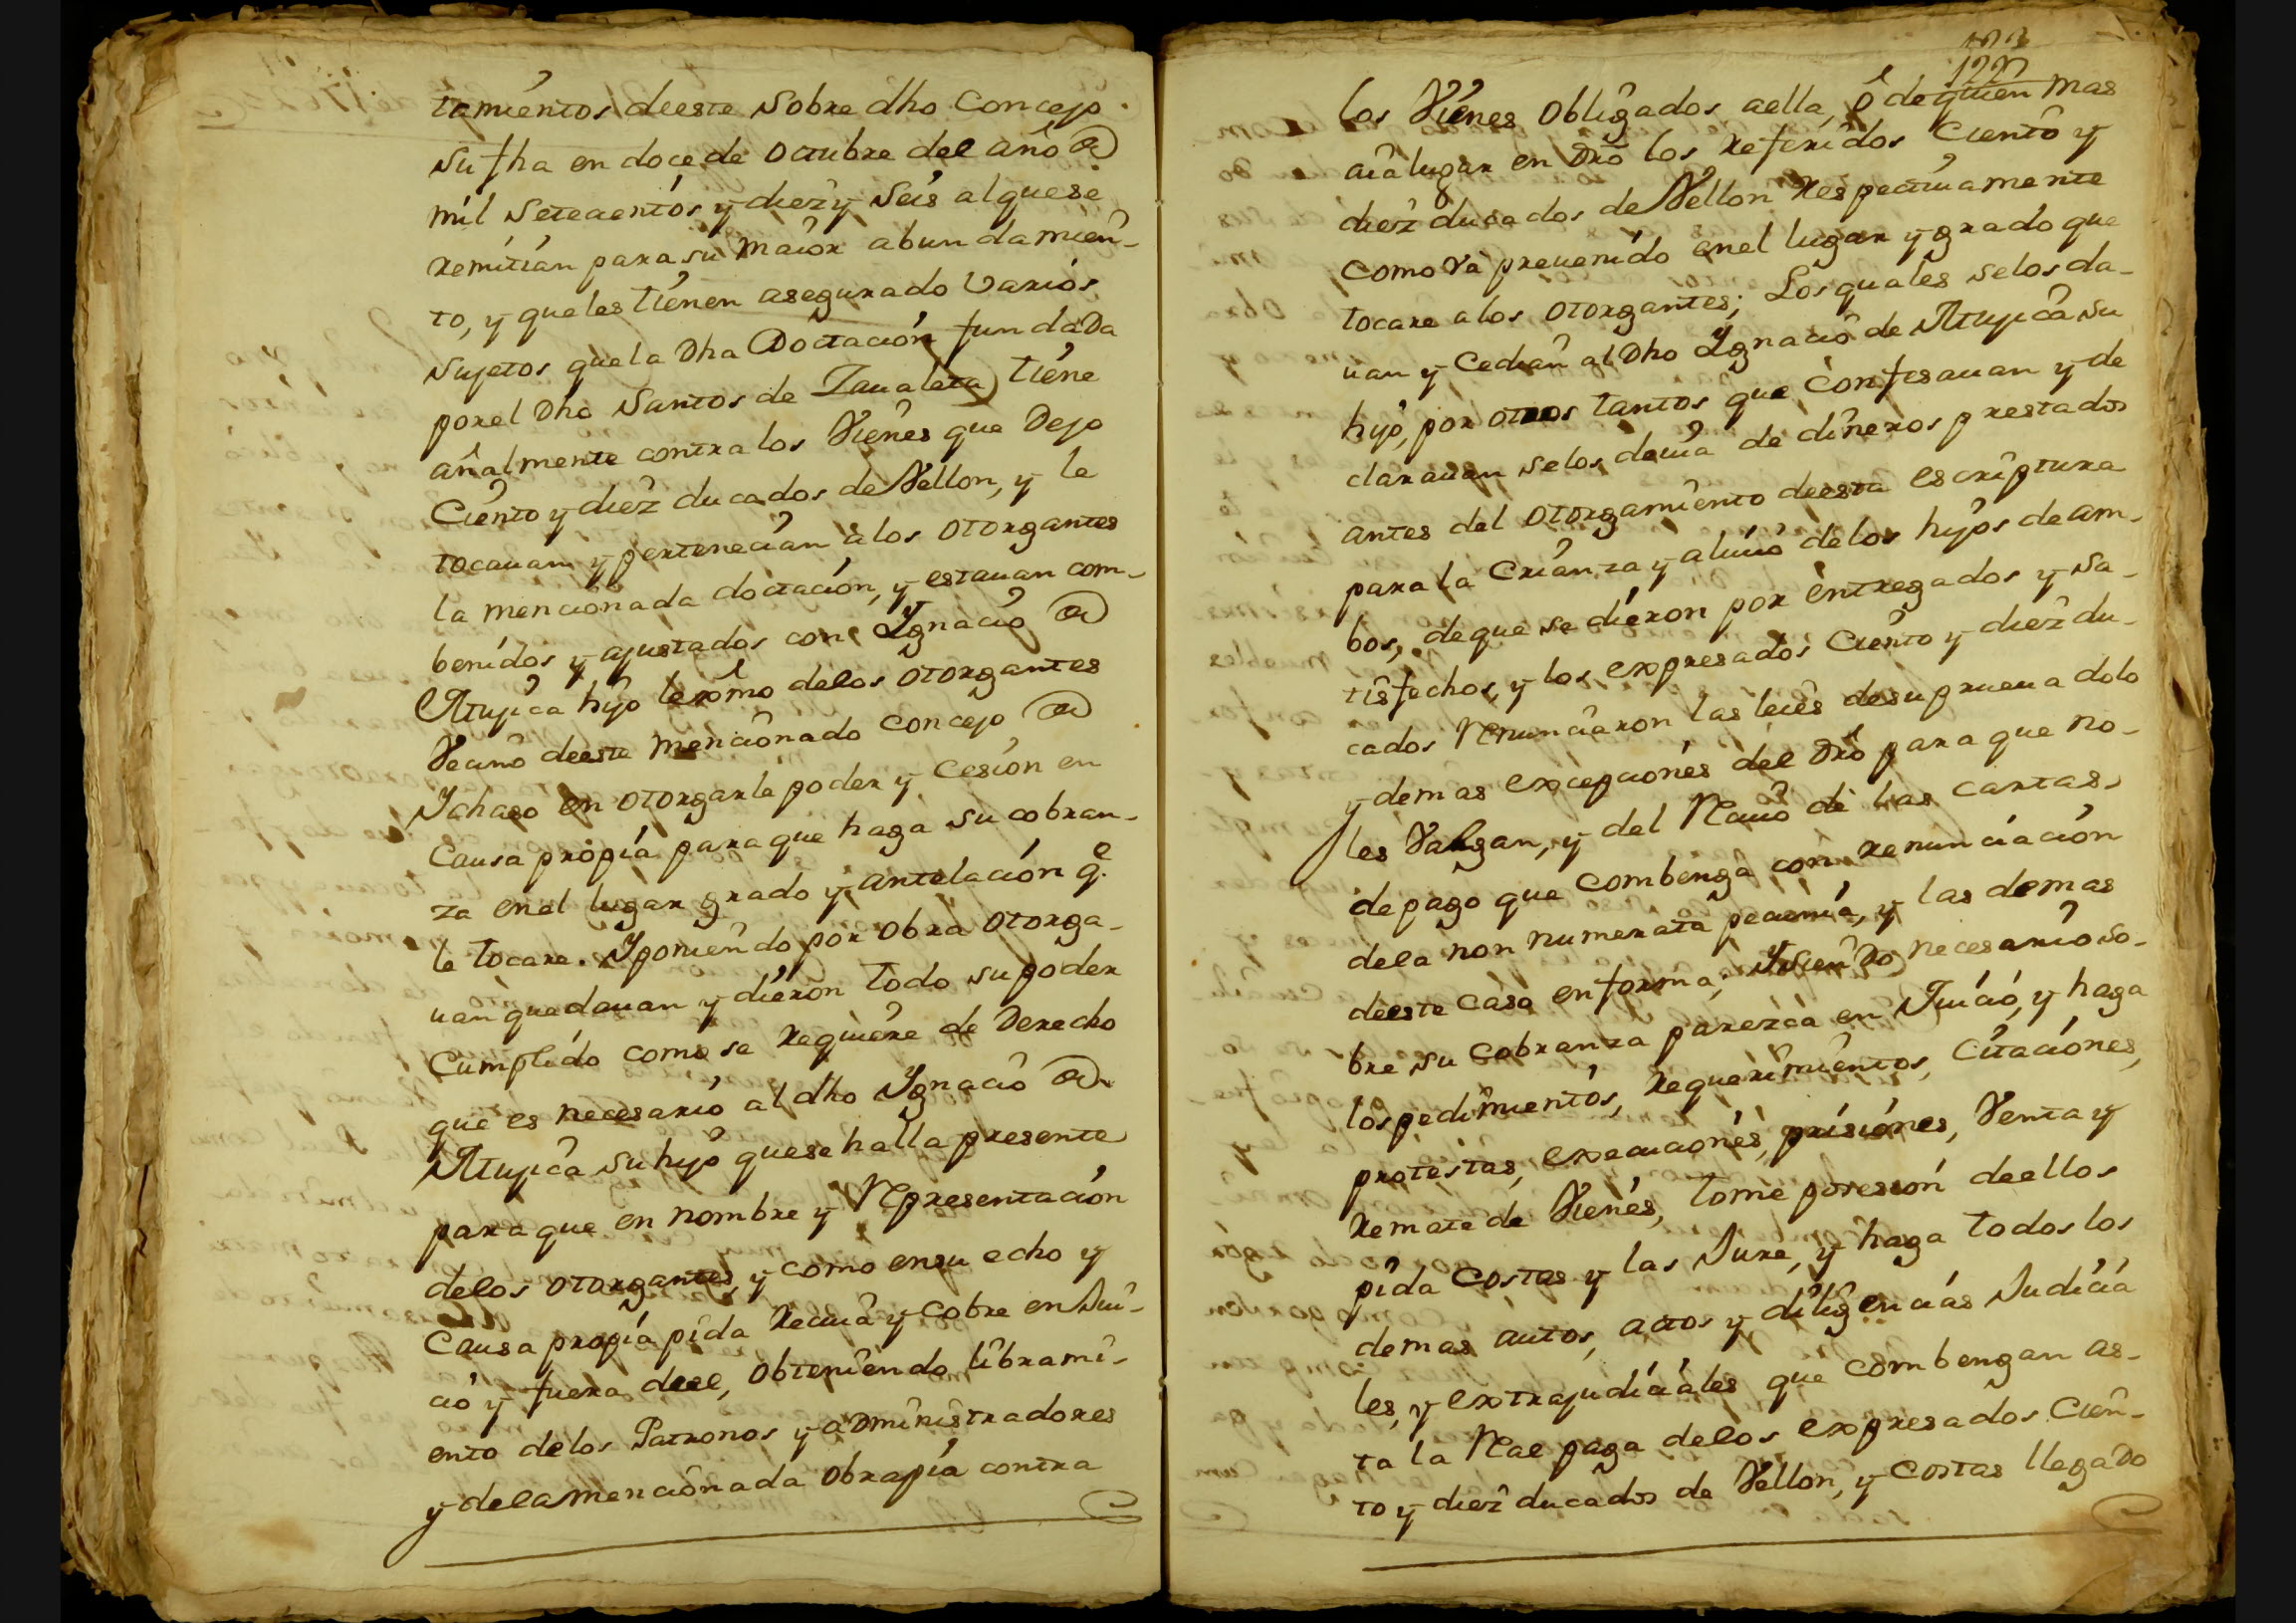 tamientos deeste Sobre dho Concejo
Su fha en doce de Octubre del año de
mil Setecientos y diez y Seis al que se
remitian para su maior abundamien-
to, y que les tienen asegurado Varios
Sujetos que la Dha Doctación fundaDa
por el Dho Santos de Zaualeta tiene
añalmente contra los Vienes que Dejo
Ciento y diez ducados de Vellon, y le
tocauan y pertenecian a los otorgantes
la mencionada doctación, y estauan com-
benidos y ajustados con Ygnacio de
Atujica hijo lexmo delos otorgantes
Vecino deeste mencionado Concejo de
Ychaso en otorgarle poder y Cesión en
Causa propia para que haga su cobran-
za en el lugar grado y antelación q.e
le tocare. Y poniendo por obra otorga-
uan que dauan y dieron todo su poder
Cumplido como se requiere de Derecho
que es necesario al dho Ygnacio de
Atujica su hijo que se halla presente
para que en nombre y Representación
delos otorgantes, y como en su echo y
Causa propia pida Reciua y Cobre en Jui-
cio y fuera deel, obteniendo librami-
ento delos Patronos y aDministradores
y dela mencionada obrapia contra
123
122
los Vienes obligados aella, ó de quien mas
aia lugar en Dro los referidos Ciento y
diez ducados de Vellon Respectiuamente
como Va preuenido en el lugar y grado que
tocare a los otorgantes; Los quales se los da-
uan y Cedian al Dho Ygnacio de Atujica su
hijo, por otros tantos que Confesauan y de
clarauan se los deuia de dineros prestados
antes del otorgamiento deesta escriptura
para la Crianza y aliuio delos hijos de am-
bos, de que se dieron por entregados y Sa-
tisfechos, y los expresados Ciento y diez du-
cados Renunciaron las leies de su prueua dolo
y demas excepciones del Dro para que no-
les Valgan, y del Reciuo de las cartas
de pago que combenga con renunciación
dela non numerata pecunia, y las demas
deeste caso en forma; Y SienDo necesario so-
bre su Cobranza parezca en Juicio, y haga
los pedimientos, requerimientos, Citaciones,
protestas, execuciones, prisiones, Venta y
Remate de Vienes, tome posesion deellos
pida costas y las Jure, y haga todos los
demas autos, actos y diligencias Judicia
les, y extrajudiciales que combengan as-
ta la Real paga delos expresados Cien-
to y diez ducados de Vellon, y Costas llegaDo